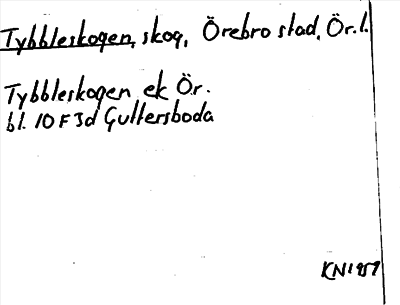 Tybbleskogen, skog, Örebro stad, Ör.l.
Tybbleskogen ek Ör.
bl. 10 F 3d Gullersboda
KN1959